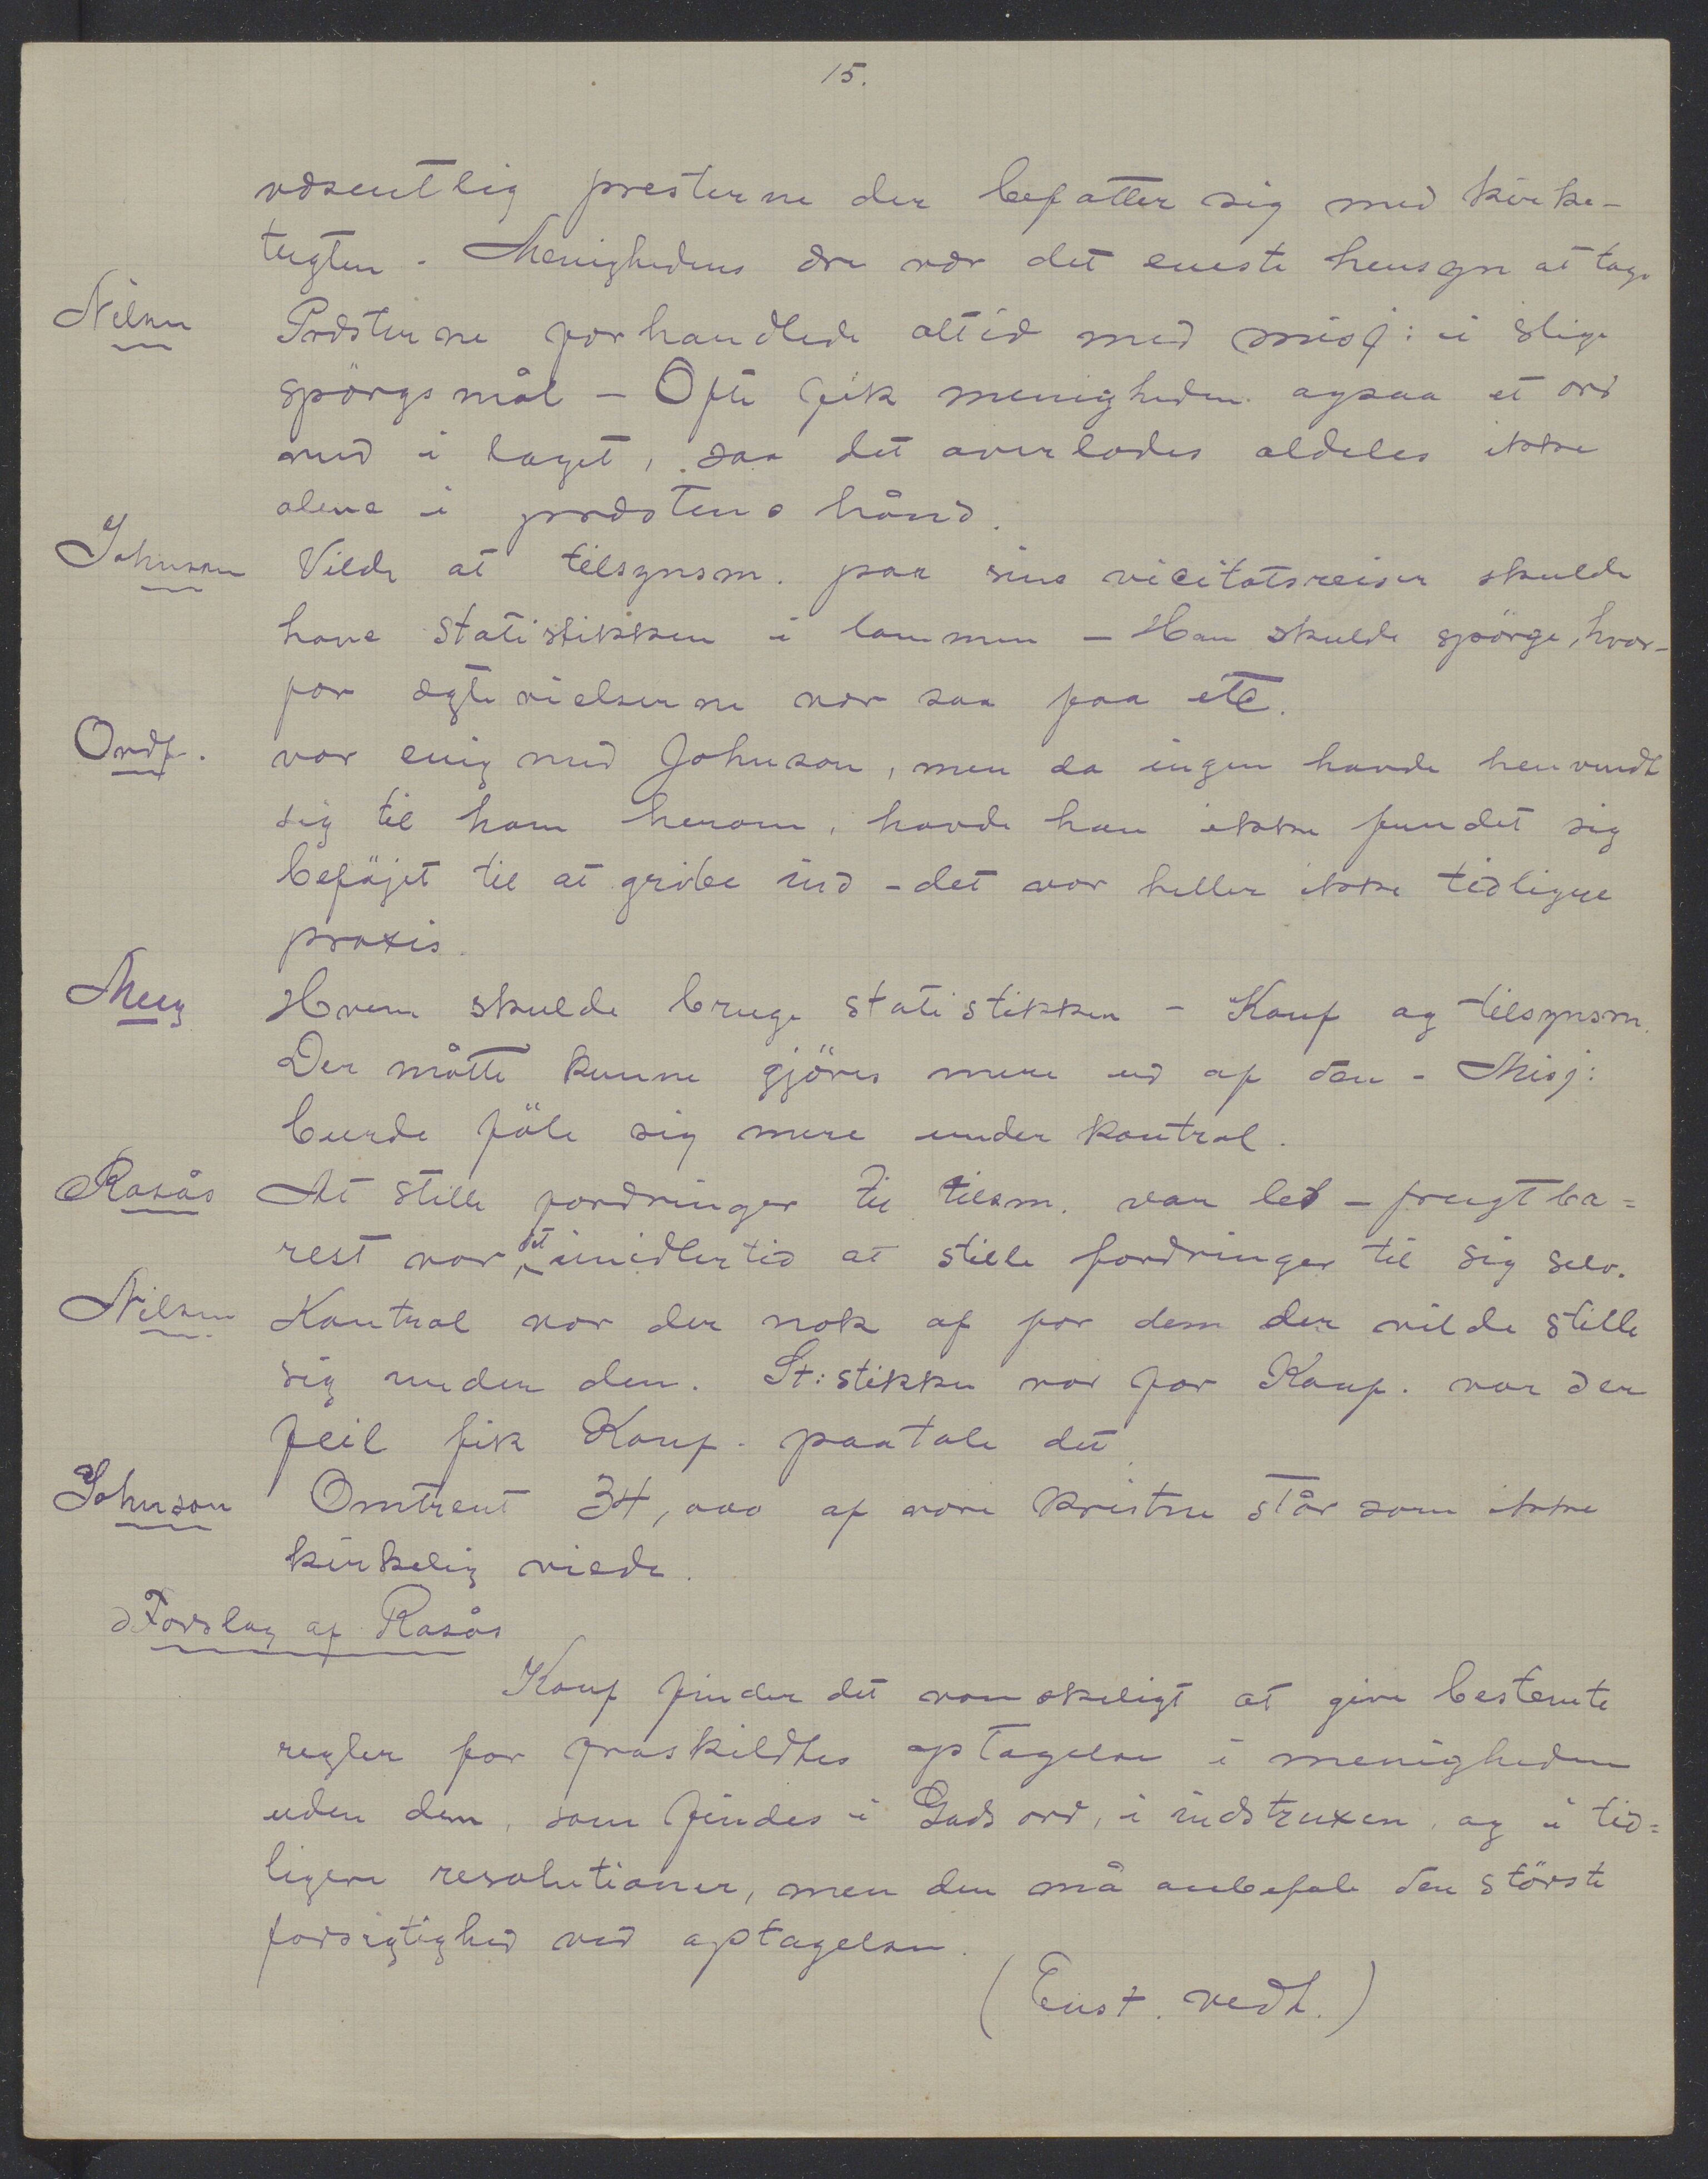 15.
væsentlig presterne der befatter sig med kirke-
tugten. Menighedens ære var det eneste hensyn at tage
Nilsen Præsterne forhandlede altid med misj: i slige
spörgsmål - Ofte fik menigheden ogsaa et ord
med i laget, saa det overlodes aldeles ikke
alene i præstens hånd.
Johnson Vilde at tilsynsm. paa sine visitatsreiser skulde
have statistikken i lommen - Han skulde spörge, hvor-
for ægtevielserne var saa faa etc.
Ordf. var enig med Johnson, men da ingen havde henvendt
sig til ham herom, havde han ikke fundet sig
beföjet til at gribe ind - det var heller ikke tidligere
praxis.
Meeg Hvem skulde bruge statistikken - Konf og tilsynsm.
Der måtte kunne gjöres mere ud af den - Misj:
burde föle sig mere under kontrol.
Rosås At stille fordringer til tilsm. var let - frugtba=
rest var det imidlertid at stille fordringer til sig selv.
Nilsen Kontrol var der nok af for dem der vilde stille
sig under den. St:stikken var for Konf. var der
feil fik Konf. paatale det
Johnson Omtrent 34,000 af vore kristne står som ikke
kirkelig viede.
Forslag af Rosås
Konf finder det vanskeligt at give bestemte
regler for fraskildtes optagelse i menigheden
uden dem, som findes i Guds ord, i indstruxen, og i tid=
ligere resolutioner, men den må anbefale den störste
forsigtighed ved optagelsen.
(Enst. vedt.)